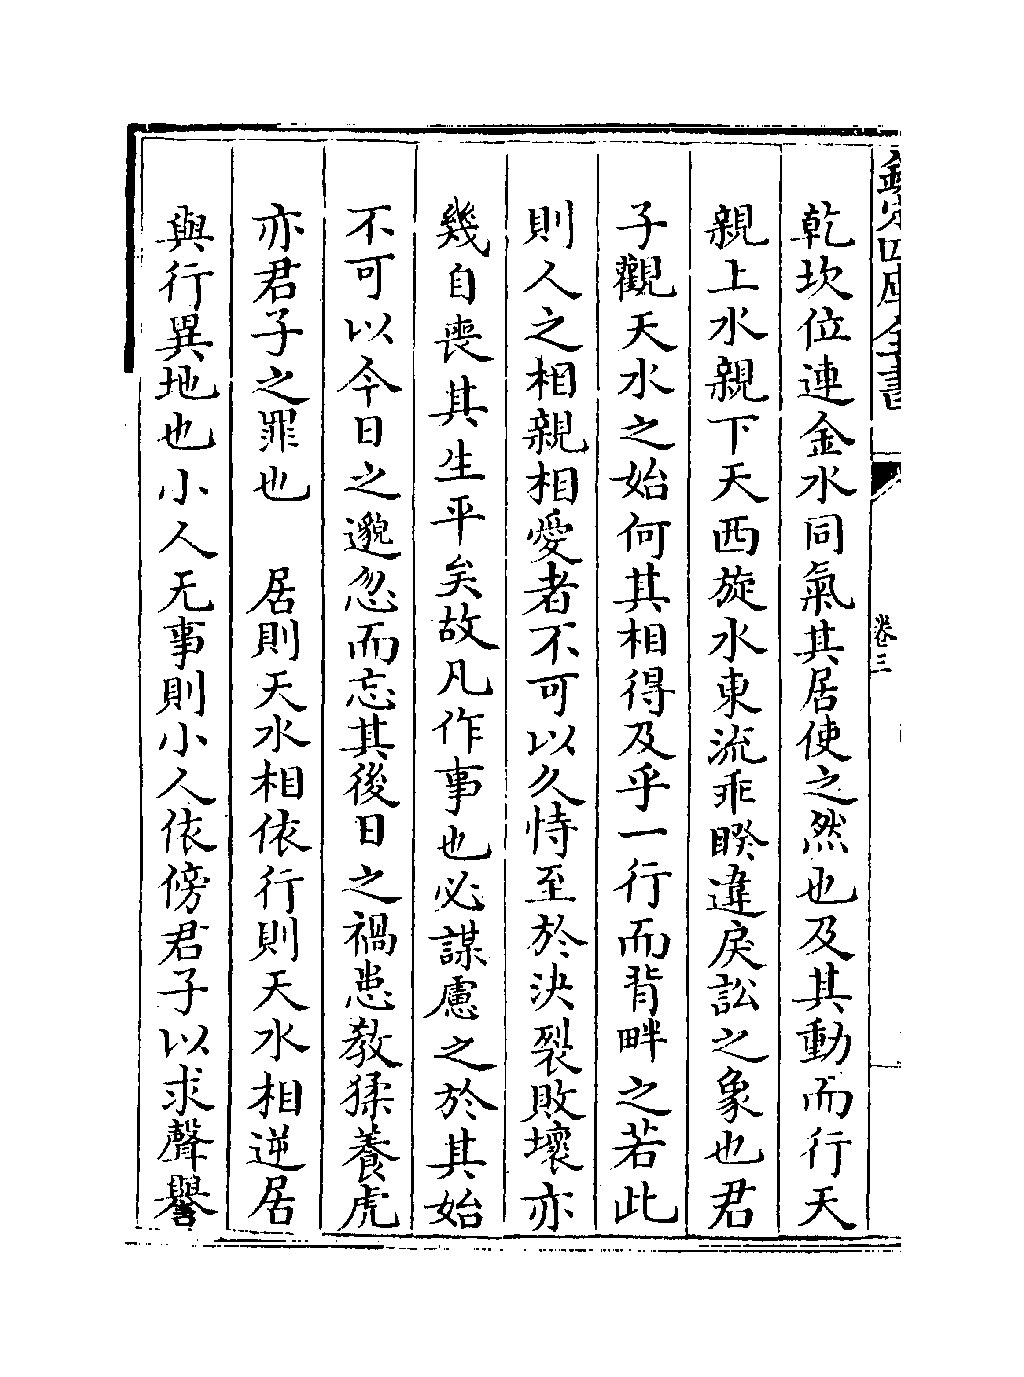 欽定四庫全書
卷三
乾坎位連金水同氣其居使之然也及其動而行天
親上水親下天西旋水東流乖睽違戾訟之象也君
子觀天水之始何其相得及乎一行而背畔之若此
則人之相親相愛者不可以久恃至於決裂敗壞亦
幾自喪其生平矣故凡作事也必謀慮之於其始
不可以今日之邈忽而忘其後日之禍患教猱養虎
亦君子之罪也　居則天水相依行則天水相逆居
與行異地也小人无事則小人依傍君子以求聲譽